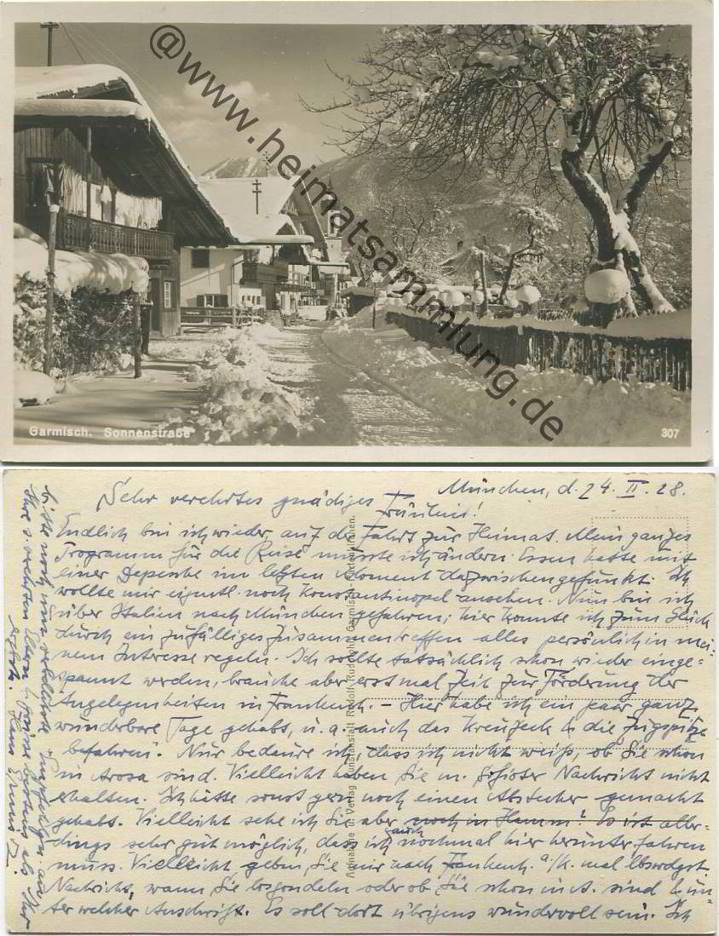 @www.heimatsammlung.de
Garmisch. Sonnenstraße 307
München, d. 24. II. 28.
Sehr verehrtes gnädiges Fräulein!
Endlich bin ich wieder auf der Fahrt zur Heimat. Mein ganzes
Programm für die Reise musste ich ändern. Essen hatte mit
einer Depesche im letzten Moment dazwischengefunkt. Ich
wollte mir eigentl. noch Konstantinopel ansehen. Nun bin ich
über Italien nach München gefahren; hier konnte ich zum Glück
durch ein zufälliges Zusammentreffen alles persönlich in mei-
nem Interesse regeln. Ich sollte tatsächlich schon wieder einge-
spannt werden, brauche aber erst mal Zeit zur Förderung der
Angelegenheiten in Frankench. – Hier habe ich ein paar ganz
wunderbare Tage gehabt, u. a. auch das Kreuzeck & die Zugspitze
"befahren". Nur bedaure ich, dass ich nicht weiß, ob Sie schon
in Arosa sind. Vielleicht haben Sie m. Sofioter Nachricht nicht
erhalten. Ich hätte sonst gern noch einen Abstecher gemacht
gehabt. Vielleicht sehe ich Sie aber noch in Hamm! Es ist aller-
dings sehr gut möglich, dass ich auch nochmal hier herunter fahren
muss. Vielleicht geben Sie mir nach Frankench. a/K. mal
Nachricht, wann Sie losgondeln oder ob Sie schon in A. sind & un-
ter welcher Anschrift. Es soll dort übrigens wundervoll sein. Ich
bitte noch um Empfehlungen an
Ihre verehrten Eltern & bin Ihr